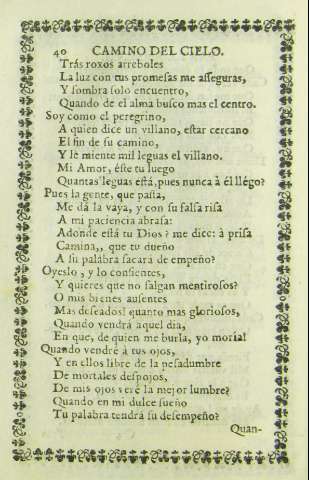 40 CAMINO DEL CIELO.
Trás roxos arreboles
La luz con tus promesas me asseguras,
Y sombra solo encuentro,
Quando de el alma busco mas el centro.
Soy como el peregrino,
A quien dice un villano, estar cercano
El fin de su camino,
Y le miente mil leguas el villano.
Mi Amor, éste tu luego
Quantas leguas está, pues nunca à él llégo?
Pues la gente, que passa,
Me dá la vaya, y con su falsa risa
A mi paciencia abrasa:
Adonde está tu Dios? me dice: à prisa
Camina,, que tu dueño
A su palabra sacará de empeño?
Oyeslo, y lo consientes,
Y quieres que no salgan mentirosos?
O mis bienes ausentes
Mas deseados! quanto mas gloriosos,
Quando vendrá aquel dia,
En que, de quien me burla, yo moría!
Quando vendré à tus ojos,
Y en ellos libre de la pesadumbre
De mortales despojos,
De mis ojos veré la mejor lumbre?
Quando en mi dulce sueño
Tu palabra tendrá su desempeño?
Quan-